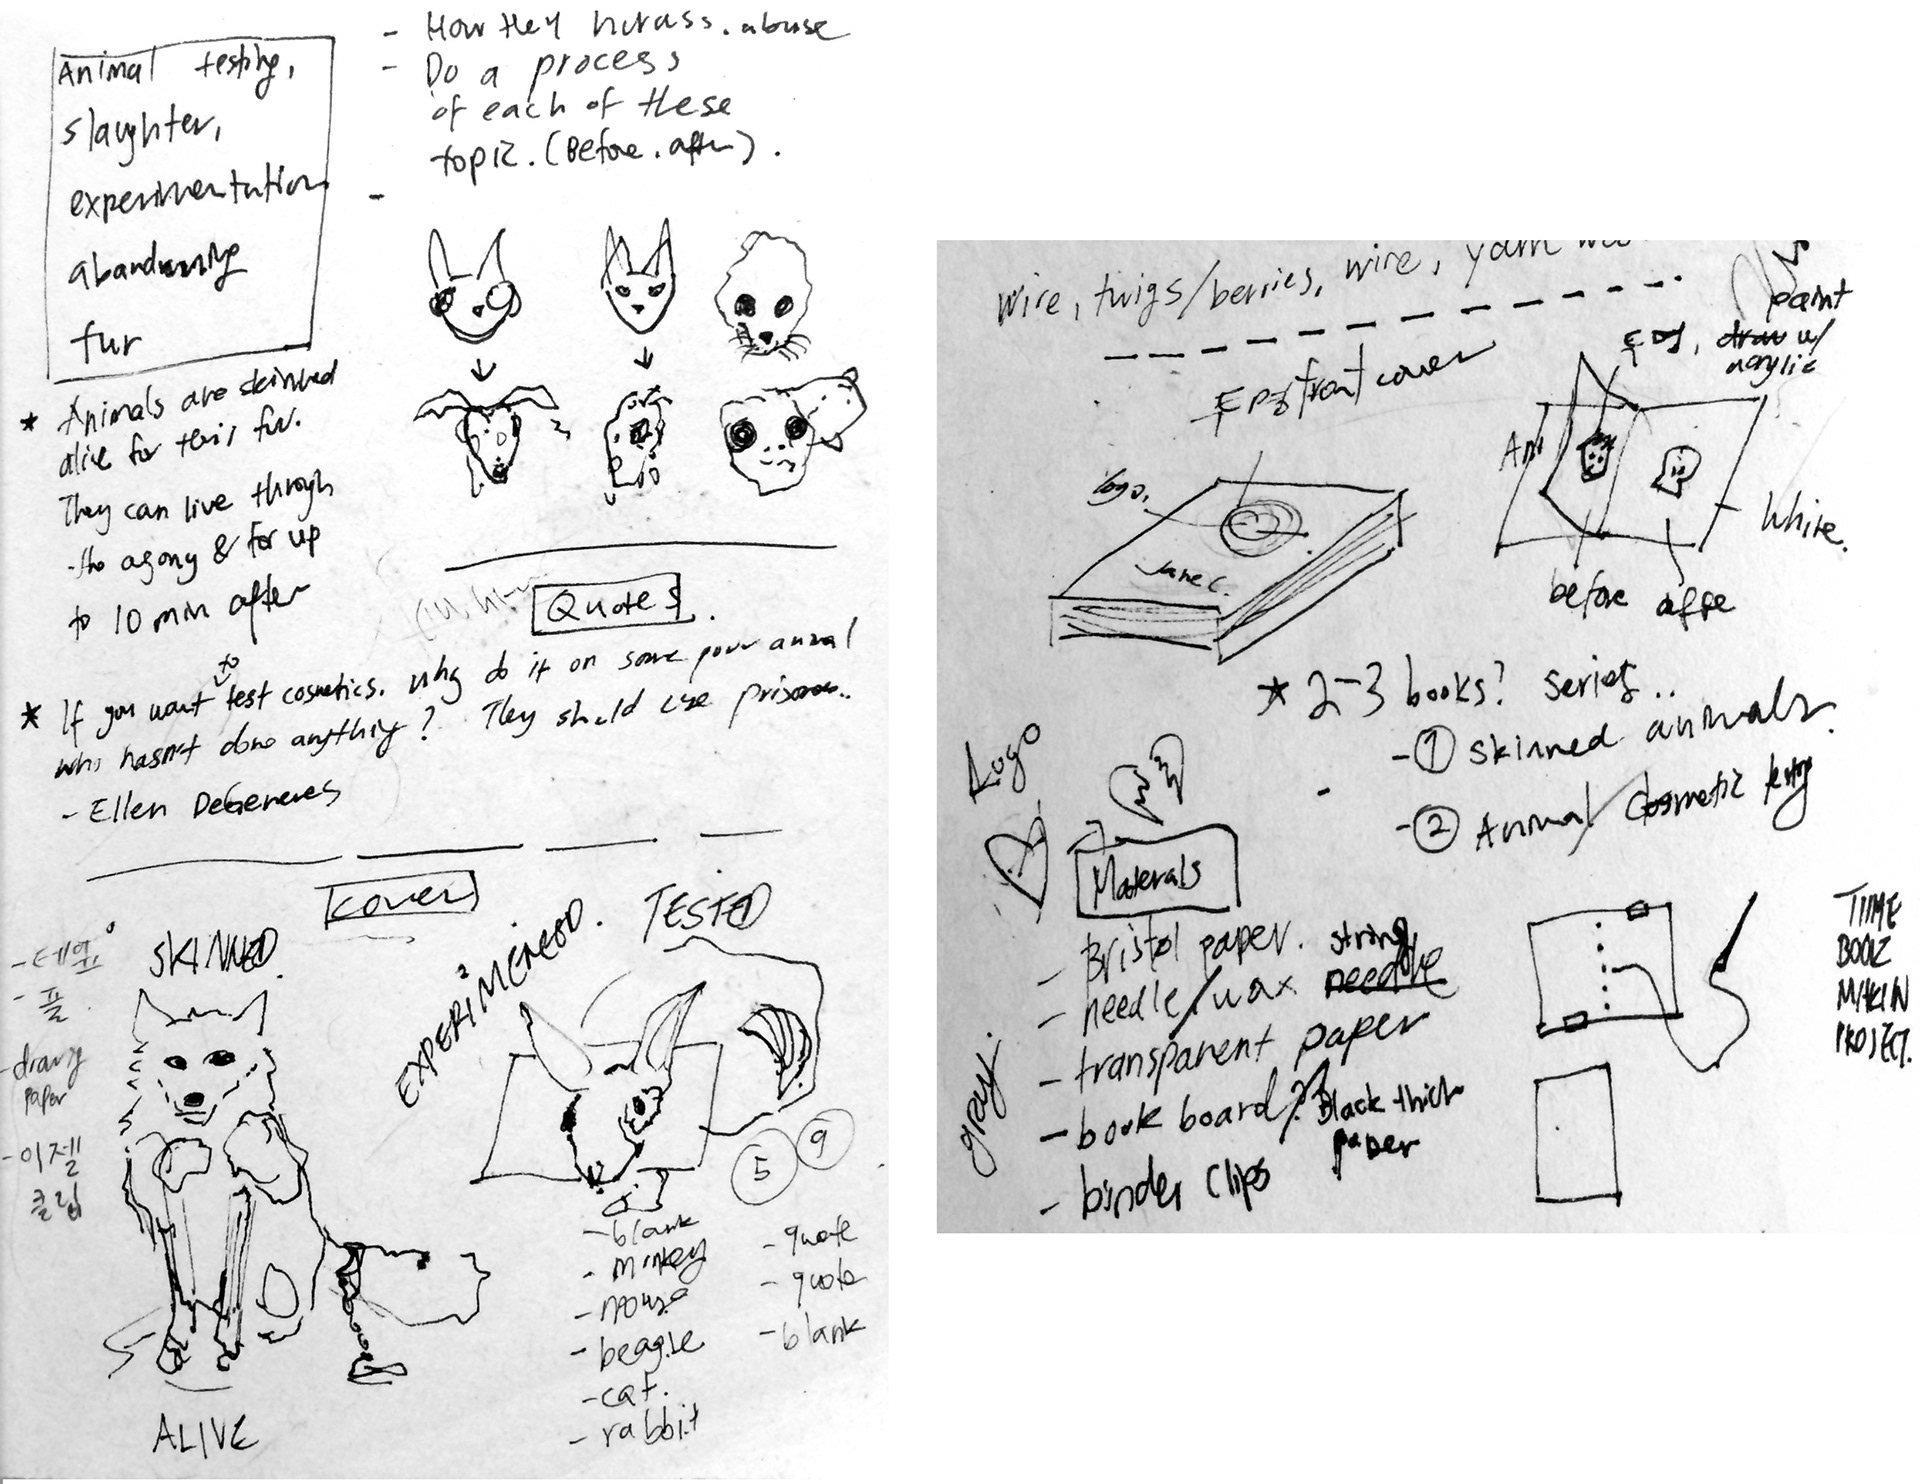 Animal testing,
slaughter,
experimentation
abandoning
fur
- How they harass. abuse
- Do a process
of each of these
topic. (Before. after).
-
* Animals are skinned
alive for this fur.
They can live through
the agony & for up
to 10 min after
Quotes.
* If you want to test cosmetics. why do it on some poor animal
who hasn't done anything? They should use prisoners..
- Ellen DeGeneres
cover
SKINNED.
TESTED
- 테잎
- 풀
- drawing
paper
- 이젤
클립
ALIVE
5
9
- blank
- monkey
- mouse
- beagle
- cat.
- rabbit
- quote
- quote
- blank
wire, twigs/berries, wire, yarn
front cover
logo.
Jane C.
paint
draw w/
acrylic
White.
before
* 2-3 books? series..
- ① skinned animals.
- ② Animal Cosmetic
Logo
Materals
- Bristol paper. string
- needle/wax needle
- transparent paper
- book board? Black thick
paper
- binder clips
gray.
TIIME
BOOK
MAKIN
PROJECT.